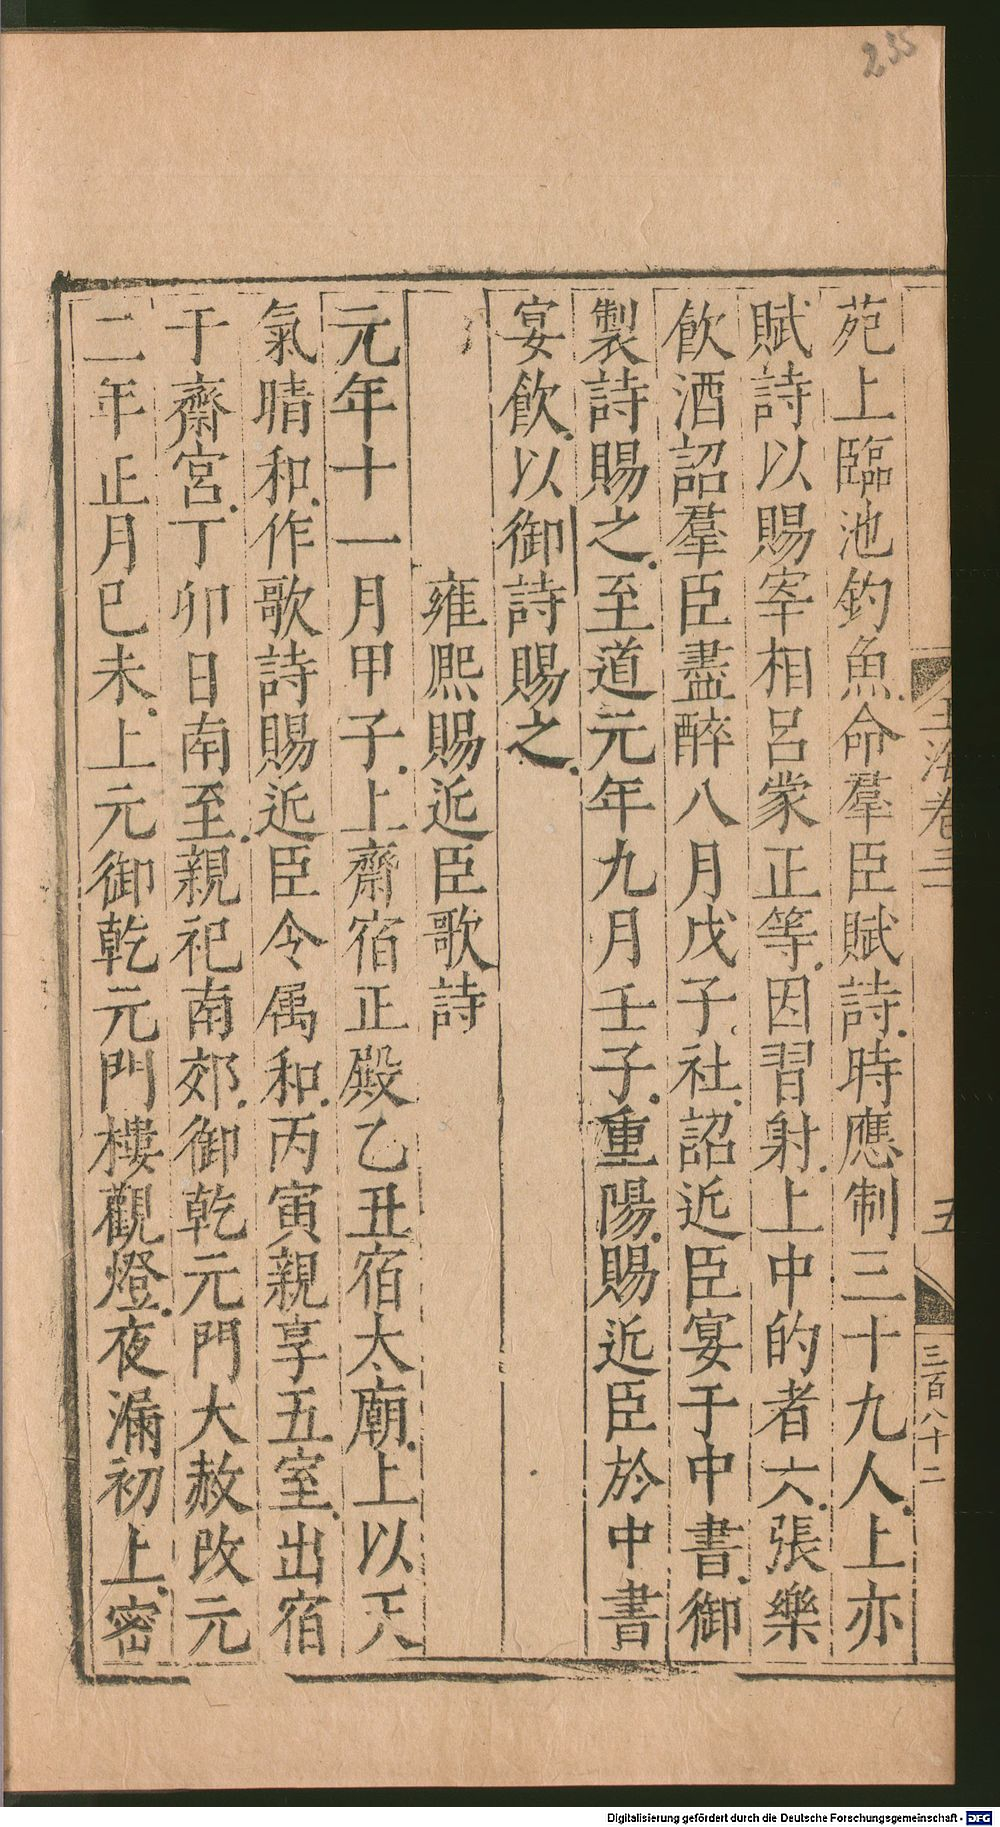 255
苑上臨池釣魚命羣臣賦詩時應制三十九人上亦
賦詩以賜宰相呂蒙正等因習射上中的者六張樂
飲酒詔羣臣盡醉八月戊子社詔近臣宴于中書御
製詩賜之至道元年九月壬子重陽賜近臣於中書
宴飲以御詩賜之
雍熙賜近臣歌詩
元年十一月甲子上齋宿正殿乙丑宿太廟上以天
氣晴和作歌詩賜近臣令属和丙寅親享五室出宿
于齋宮丁卯日南至親祀南郊御乾元門大赦改元
二年正月已未上元御乾元門樓觀燈夜漏初上密
玉海卷三
五
三百八十二
Digitalisierung gefördert durch die Deutsche Forschungsgemeinschaft - DFG